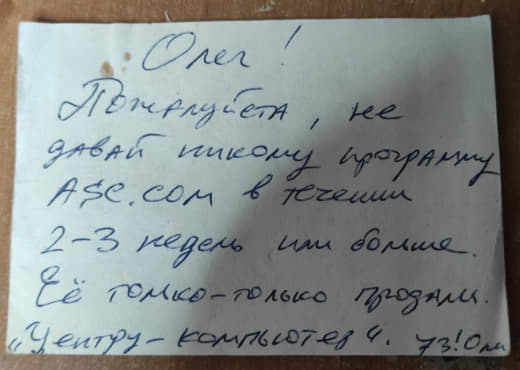 Олег!
Пожалуйста, не
давай никому программу
ASC.COM в течении
2-3 недель или больше.
Её только-только продали
"Центру-компьютер". 73!